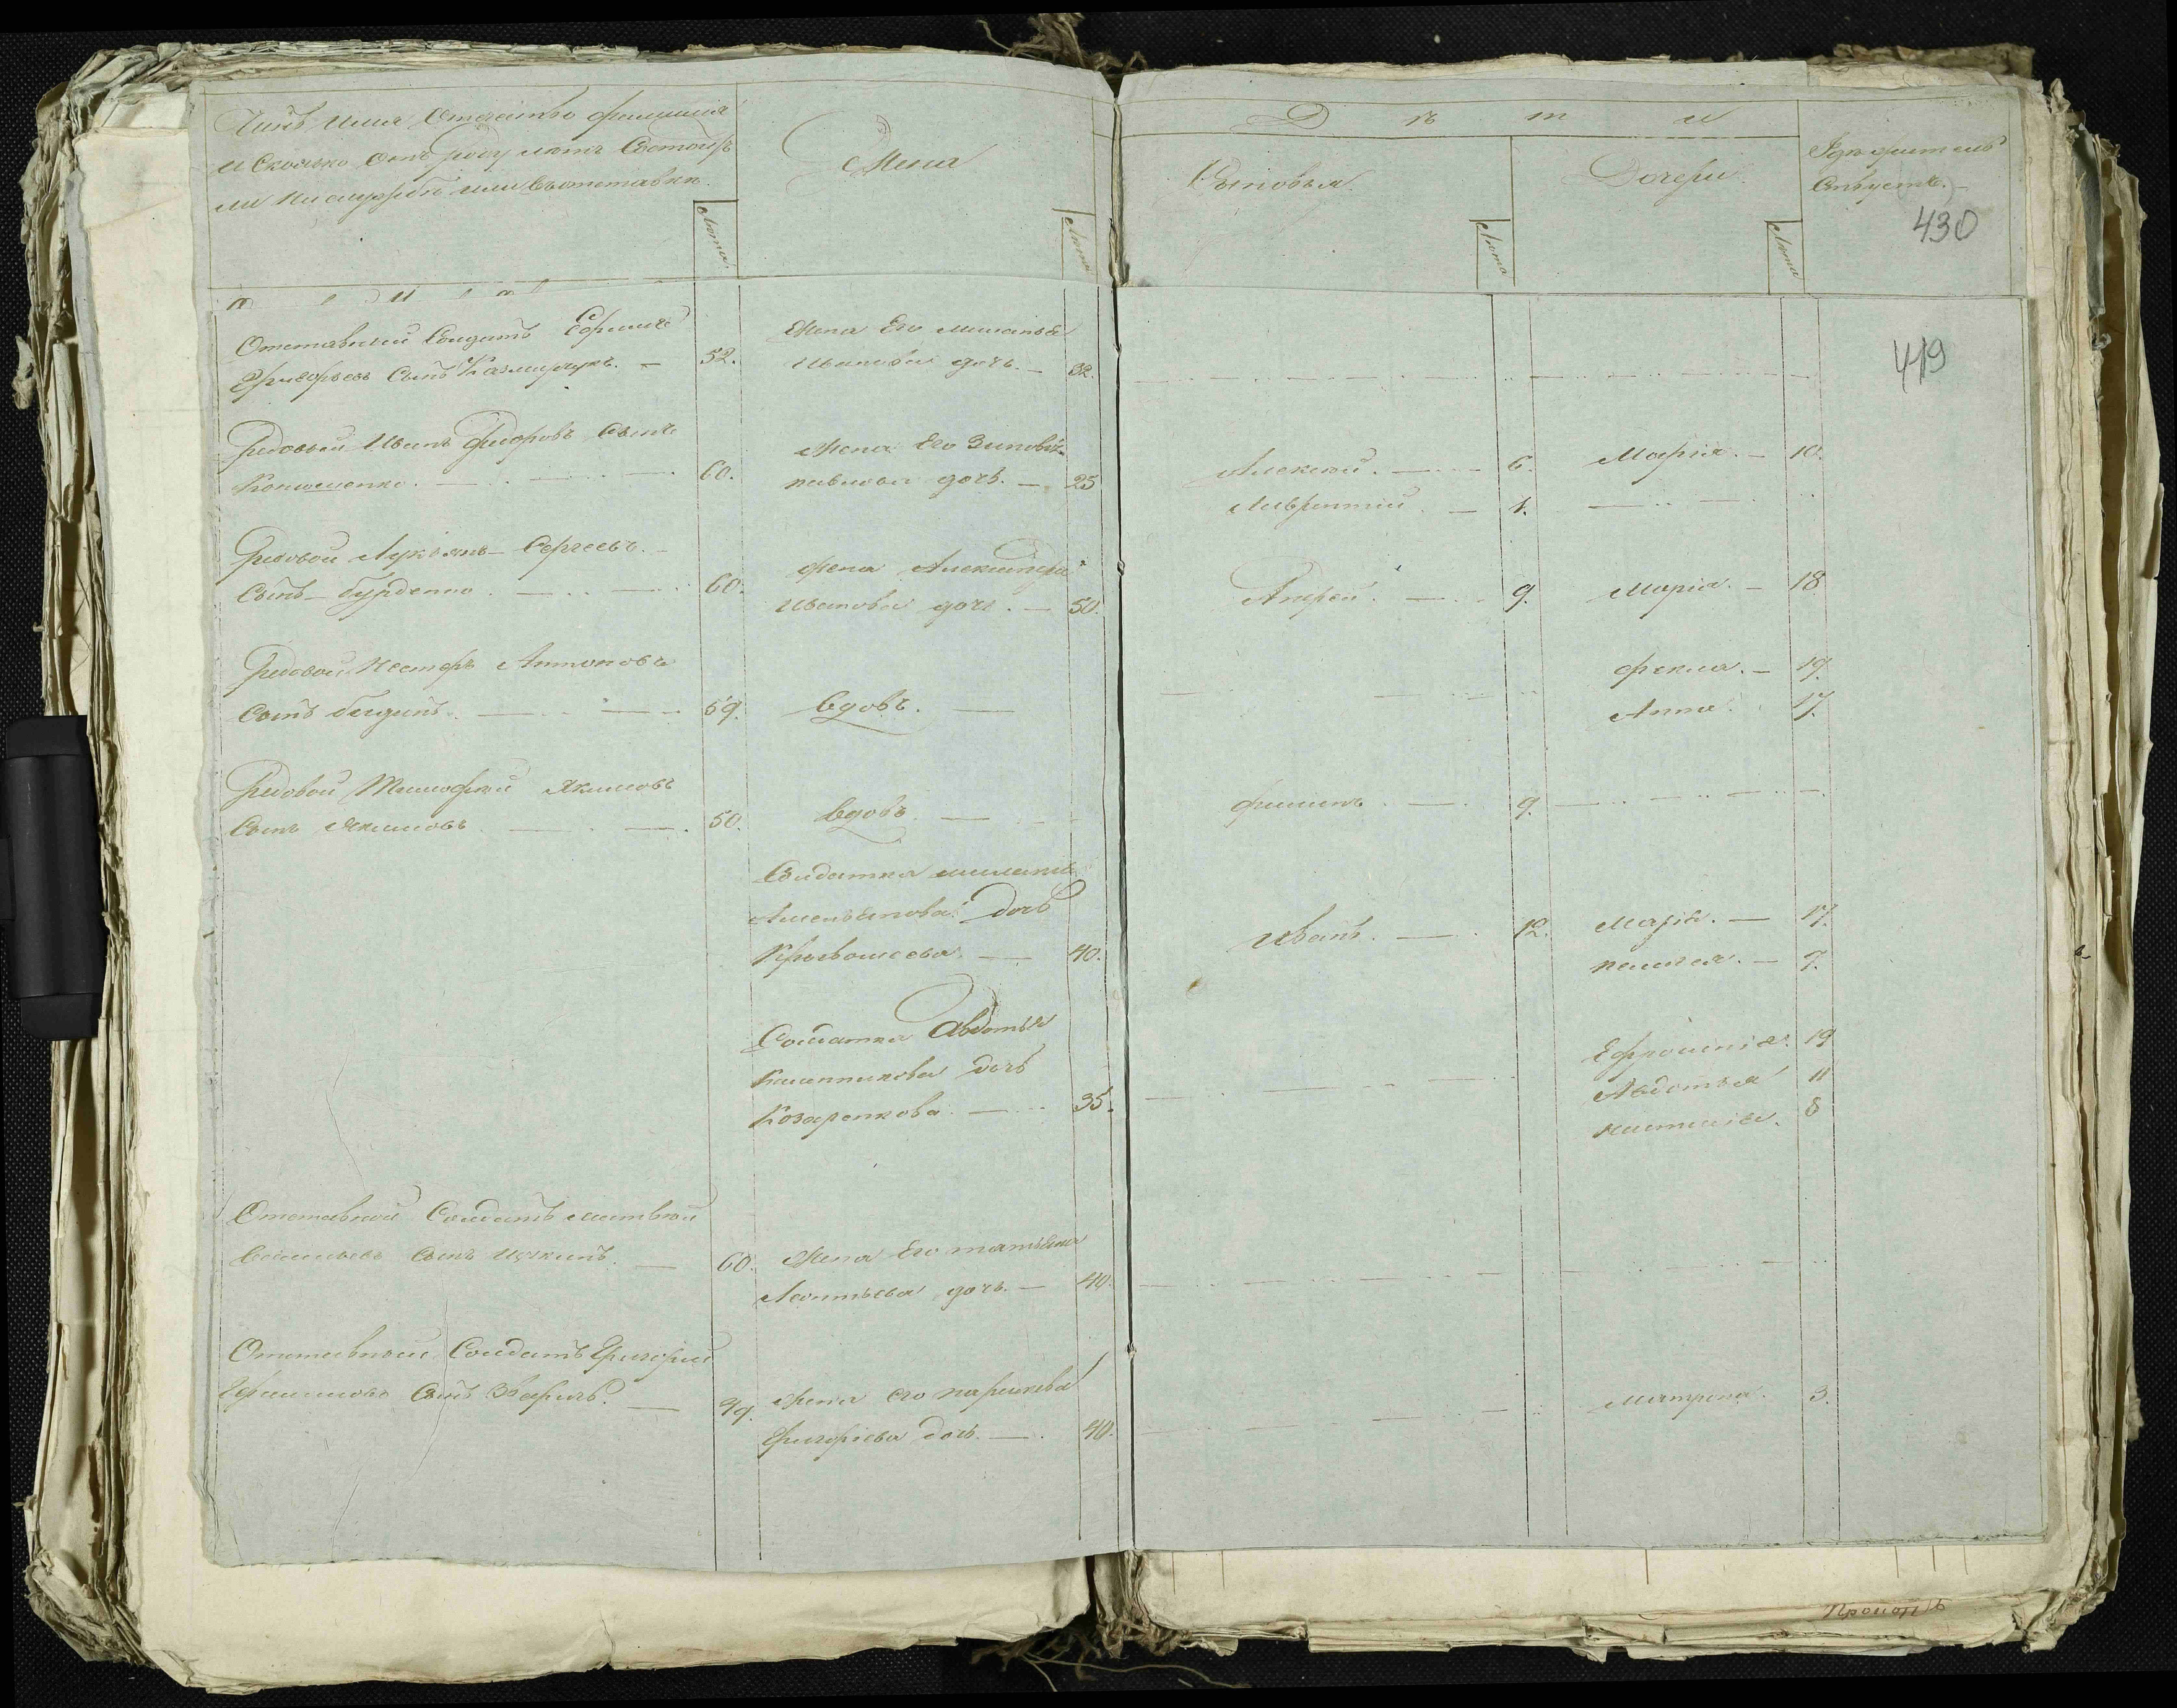 Чинъ имя Отечество фамилия
и Сколько Отъ роду летъ Состоитъ
ли на службе или въ отставке.
Лета
Жена
Лета
Дѣти
Сыновья
Лета
Дочери
Лета
Где жительст
430
Отставный Солдатъ Ефимъ
Григорьевъ Сынъ Казмирукъ. — 52.
Жена Его
Иванова дочь. — 32.
419
Редовый Иванъ Федоровъ Сынъ
60.
Жена Его Зиновья
павлова дочь. — 25
Алексей. — 6.
Лаврентий — 1.
Марфа. — 10.
Редовой Лукьянъ Сергеевъ
Сынъ Бурденко. — 60.
Жена Александра
Иванова дочь. — 50.
Андрей. — 9.
Мария. — 18
Редовой Нестеръ Антоновъ
Сынъ — 59.
Вдовъ. —
Фекла. — 19.
Анна. 17.
Редовой Тимофей Якимовъ
Сынъ Якимовъ — 50.
Вдовъ. —
Филипъ. — 9.
Солдатка
дочь
— 40.
Иванъ. — 12.
Марія. — 17.
пелагея. — 9.
Солдатка Авдотья
дочь
Козаренкова. — 35.
Ефросинія. 19
Авдотья 11
8
Отставной Солдатъ матвей
Васильевъ Сынъ — 60.
Жена Его татьяна
Леонтьева дочь. — 40.
Отставный Солдатъ Григорий
Ефимовъ Сынъ — 49.
Жена его парасковья
Григорієва дочь. — 40.
матрона. 3.